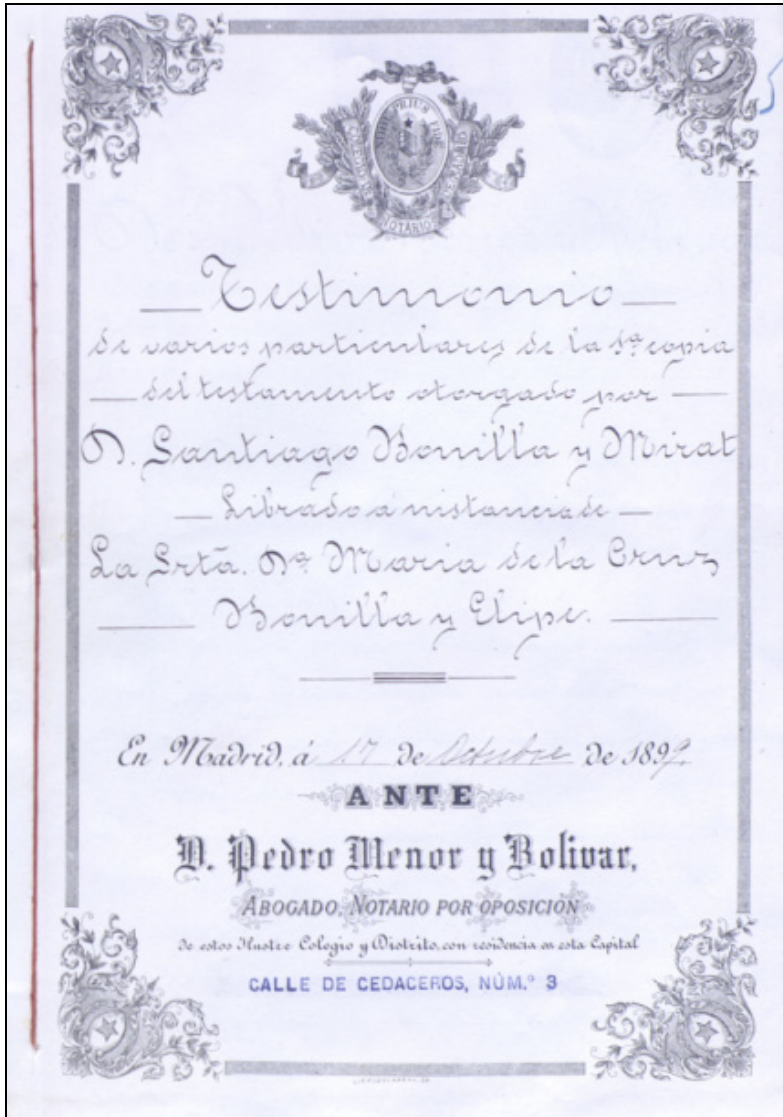 NIHIL PRIUS FIDE
COLEGIO NOTARIAL DE MADRID
Testimonio
de varios particulares de la 1ª copia
del testamento otorgado por
D. Santiago Bonilla y Mirat
Librado a instancia de
La Srtã. Dª Maria de la Cruz
Bonilla y Elipe.
En Madrid, á 17 de Octubre de 1899.
ANTE
D. Pedro Menor y Bolivar,
ABOGADO, NOTARIO POR OPOSICIÓN
de estos Ilustre Colegio y Distrito, con residencia en esta Capital
CALLE DE CEDACEROS, NÚM.º 3